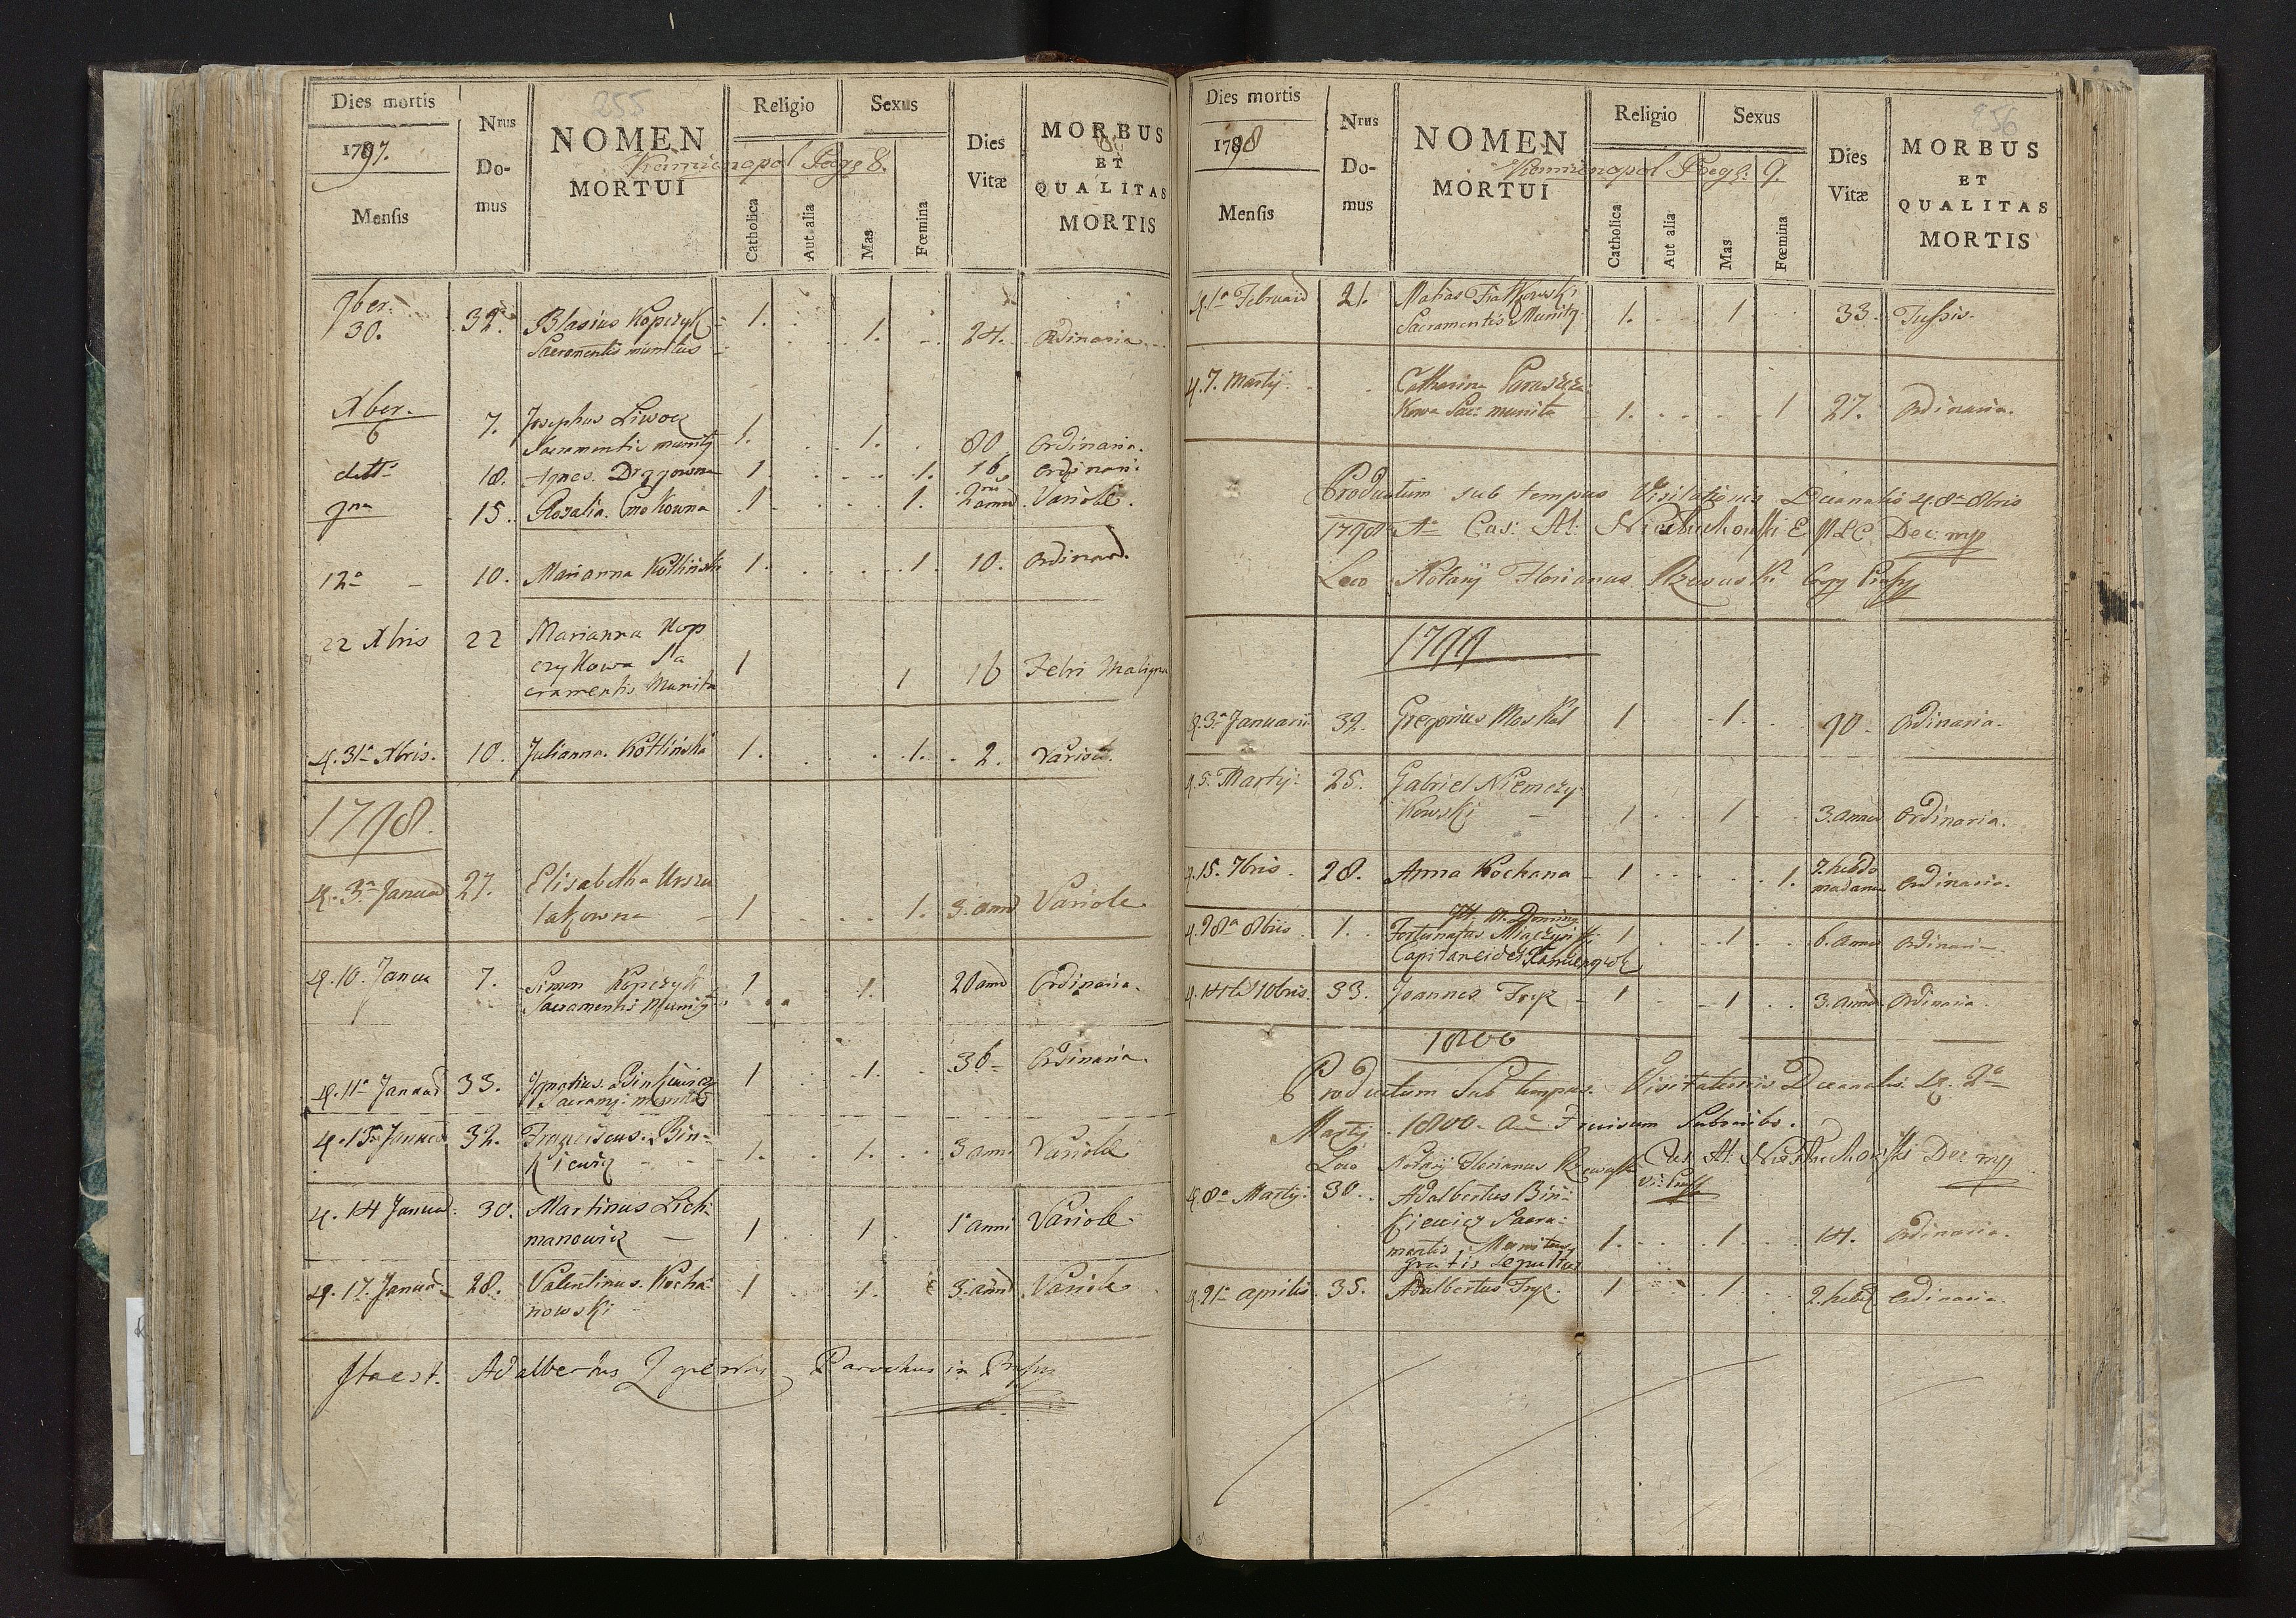 255
Dies mortis
1797.
Mensis
Nrus
Do-
mus
NOMEN
MORTUI
Kamienopol Pag: 8.
Religio
Catholica
Aut alia
Sexus
Mas
Fœmina
Dies
Vitæ
MORBUS
ET
QUALITAS
MORTIS
9ber
30. 32. Blasius Kopczyk 1. 1. 24. Ordinaria
Sacramentis munitus
Xber.
6 7. Josephus Liwocz
Sacramentis munitg 1. 1. 80 Ordinaria.
detto 18. Agnes 1. 1. 16 Ordinari:
9na 15. Rosalia 1 1. 2 anno Variole.
12a 10. Marianna Kotlinski 1. 1. 10. Ordinar.
22 Xbris 22 Marianna Kop
czykowa Sa
cramentis Munita 1 1 16 Febri Maligna
4. 31a Xbris. 10. Julianna Kotlinska 1. 1. 2. Variol.
1798.
4. 3a Januar 27. Elisabetha Urszu
lakowna 1 1. 3. anno Variole.
4. 10. Janua 7. Simon Kopczyk 1 1. 20 anno Ordinaria.
Sacramentis Munitg
36 Ordinaria.
4. 11a Januar 33. Ignatius Binkiewicz 1 1.
Sacram: munitus
4. 13a Januar 32. Franciscus Bin-
kiewicz 1. 1. 3 anno Variole
4. 14 Januar. 30. Martinus Lich-
manowicz 1 1 1 anni Variole
4. 17. Januar 28. Valentinus Kocha-
nowski 1 1. 3. anno Variole
Ita est. Adalbertus Parochus in
256
Dies mortis
1798
Mensis
Nrus
Do-
mus
NOMEN
MORTUI
Kamienopol Pag: 9.
Religio
Catholica
Aut alia
Sexus
Mas
Fœmina
Dies
Vitæ
MORBUS
ET
QUALITAS
MORTIS
4. 1a Februar 21. Matias Fiałkowski
Sacramentis Munitg 1. 1 33 Tussis.
4. 7. Martij Catharina
kowa Sac: munita 1. 1 27. Ordinaria.
Productum sub tempus Visitationis Decanalis 4. 8a 8bris
1798 Ao Cas: At: Dec: mp
Loco Notarij Florianus Rzewuski
1799
4. 3a Januarii 32. Gregorius Moskal 1 1. 90 Ordinaria.
4. 5. Martij 25. Gabriel Niemczy-
kowski 1 1 3. anno Ordinaria.
4. 15. 7bris. 28. Anna Kochana 1 1. 7. hebdo
madarum Ordinaria.
4. 28a 8bris 1. Fortunatus 1 1 6. anno Ordinari
Capitaneides
4. 14 10bris. 33. Joannes Fryz 1 1 3. anno Ordinaria
1800
Productum Sub tempus Visitationis Decanalis 4. 2a
Martij 1800 Subscribo.
Loco Notarij Florianus Rzewuski Cas At: Dec mp
4. 8a Martij 30. Adalbertus Bin-
kiewicz Sacra-
mentis Munitus 1. 1 14. Ordinaria.
gratis sepultus
4. 21a aprilis 35. Adalbertus Fryz. 1 1 2. hebd Ordinaria